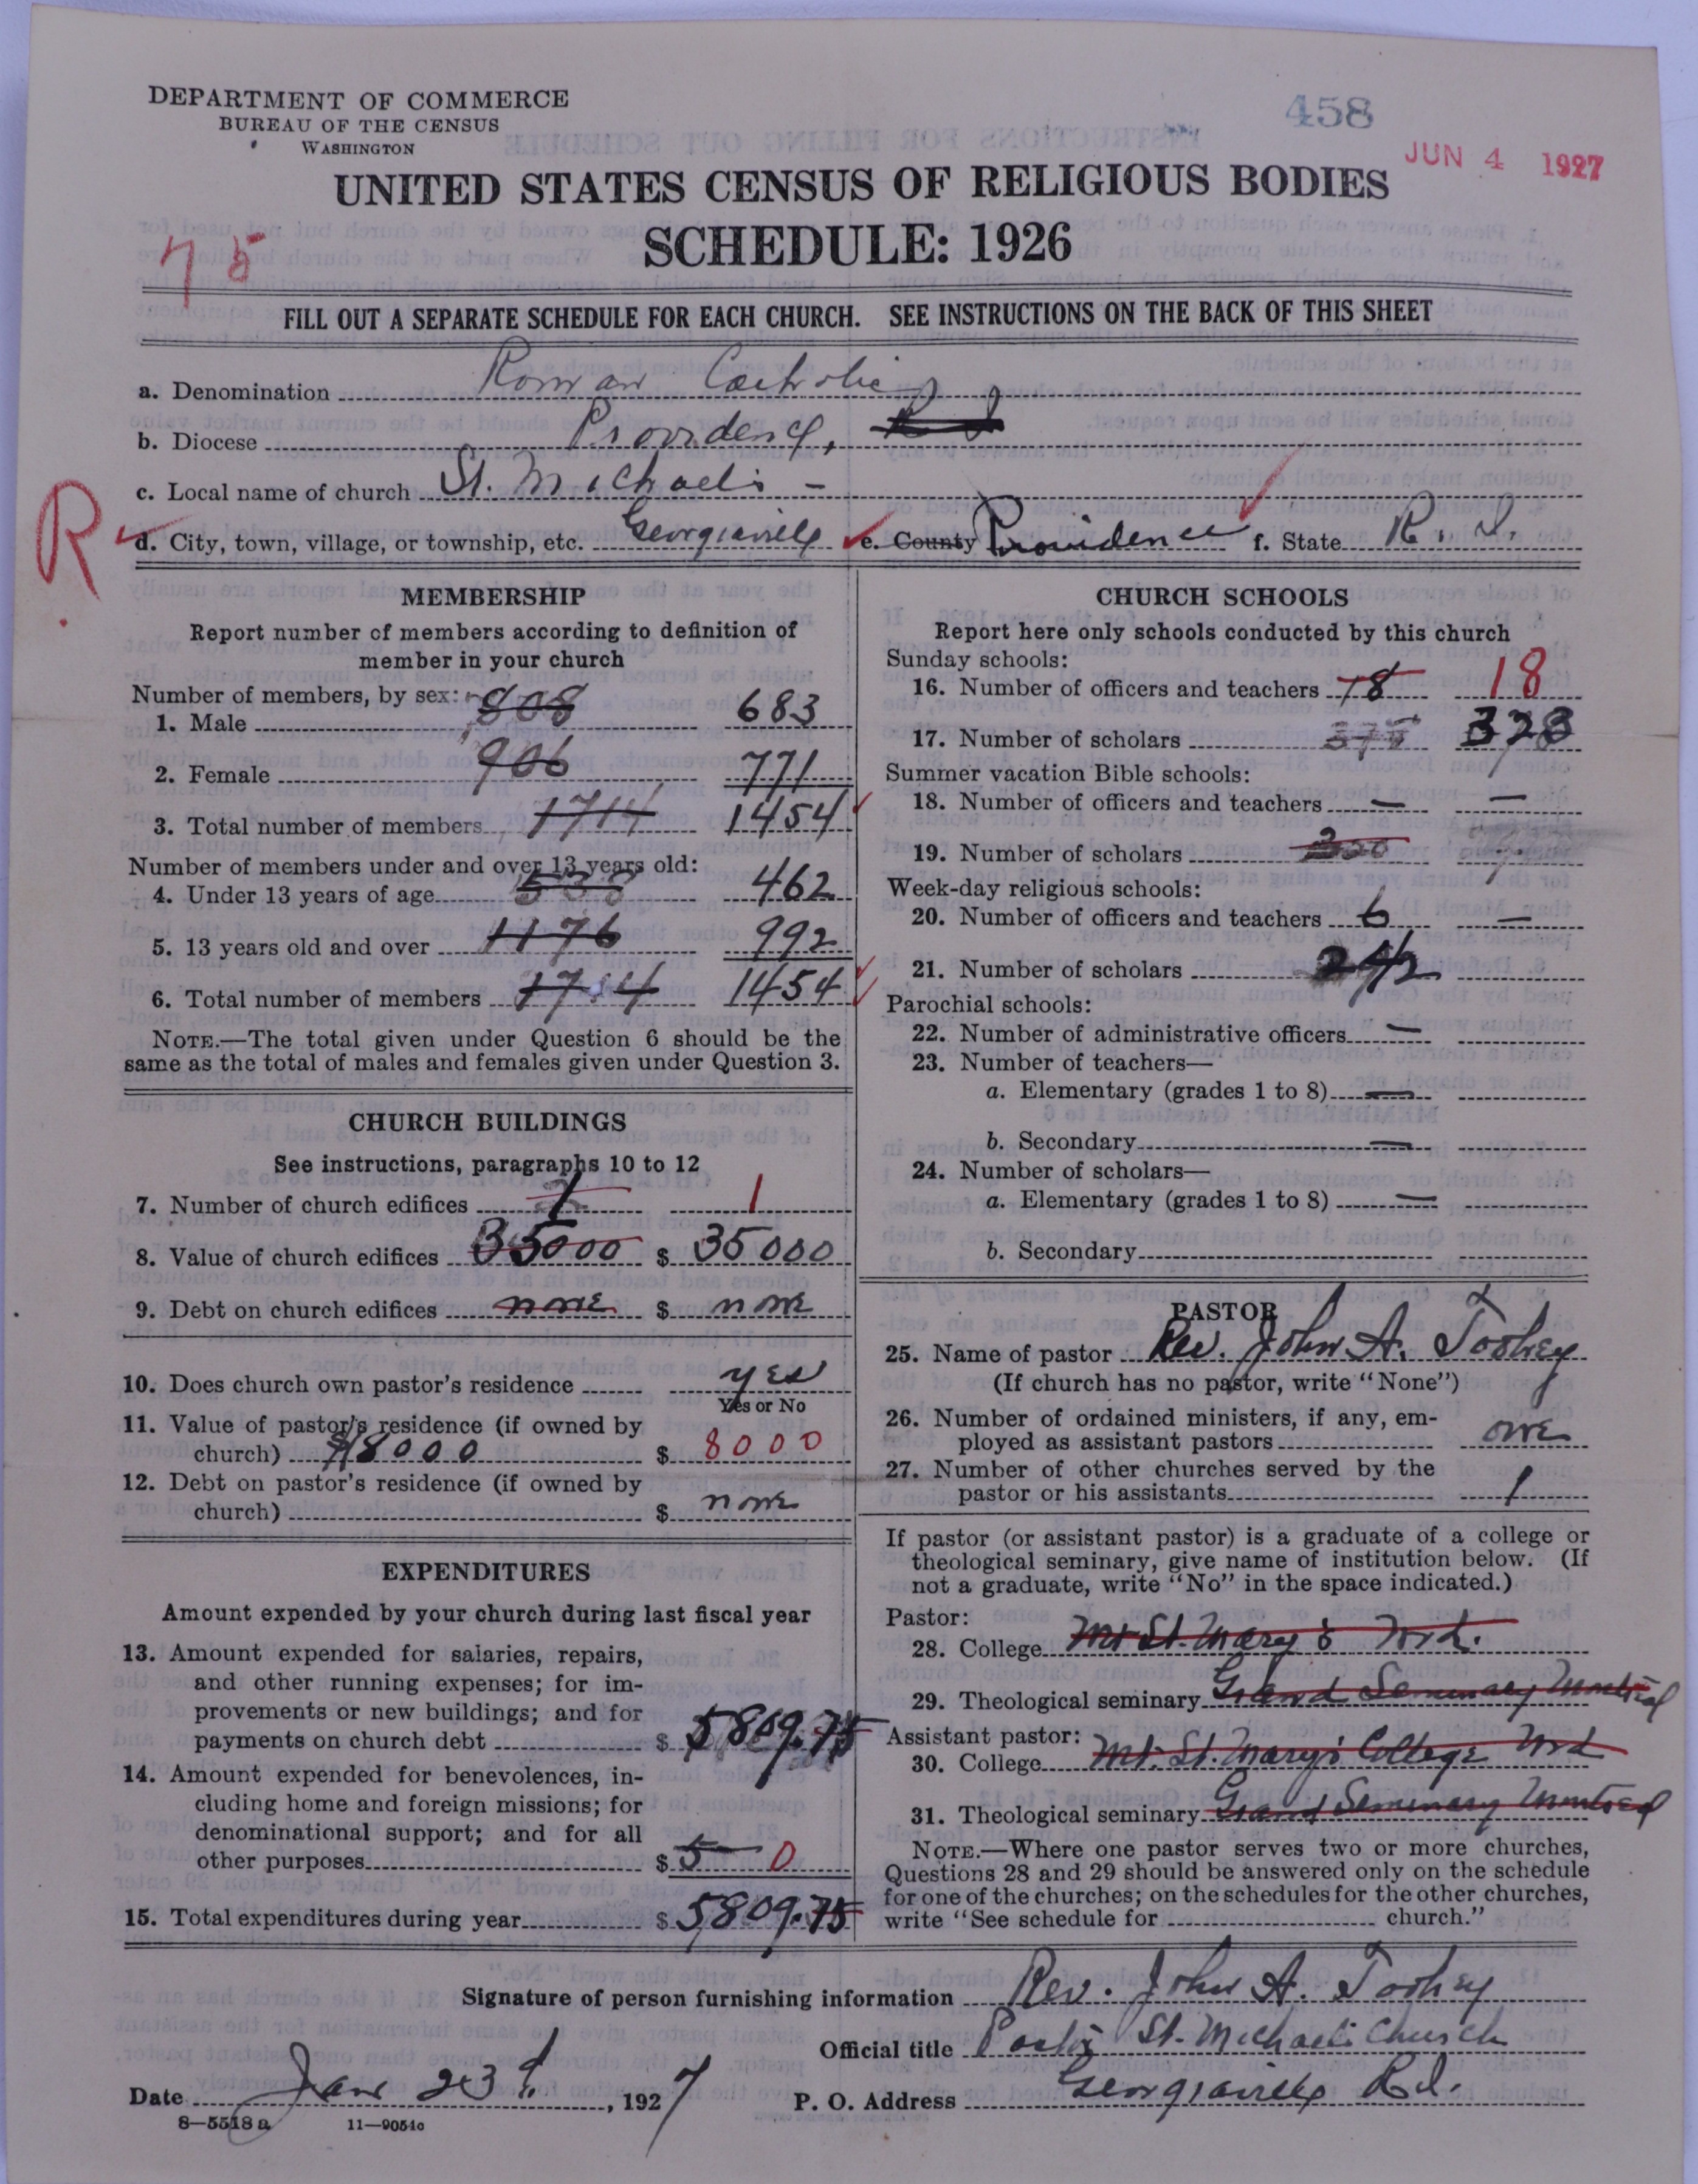 DEPARTMENT OF COMMERCE
BUREAU OF THE CENSUS
WASHINGTON
458
JUN 4 1927
UNITED STATES CENSUS OF RELIGIOUS BODIES
SCHEDULE: 1926
75
FILL OUT A SEPARATE SCHEDULE FOR EACH CHURCH. SEE INSTRUCTIONS ON THE BACK OF THIS SHEET
a. Denomination Roman Catholic
b. Diocese Providence, R I
c. Local name of church St. Michael's -
R
d. City, town, village, or township, etc. Georgiaville e. County Providence f. State R. I.
MEMBERSHIP
Report number of members according to definition of
member in your church
Number of members, by sex:
1. Male 808 683
2. Female 906 771
3. Total number of members 1714 1454
Number of members under and over 13 years old:
4. Under 13 years of age 538 462
5. 13 years old and over 1176 992
6. Total number of members 1714 1454
NOTE.—The total given under Question 6 should be the
same as the total of males and females given under Question 3.
CHURCH BUILDINGS
See instructions, paragraphs 10 to 12
7. Number of church edifices 1 1
8. Value of church edifices 35000 $ 35000
9. Debt on church edifices none $ none
10. Does church own pastor's residence yes
Yes or No
11. Value of pastor's residence (if owned by
church) $18000 $ 8000
12. Debt on pastor's residence (if owned by
church) $ none
EXPENDITURES
Amount expended by your church during last fiscal year
13. Amount expended for salaries, repairs,
and other running expenses; for im-
provements or new buildings; and for
payments on church debt $ 5809.75
14. Amount expended for benevolences, in-
cluding home and foreign missions; for
denominational support; and for all
other purposes $ 0
15. Total expenditures during year $ 5809.75
CHURCH SCHOOLS
Report here only schools conducted by this church
Sunday schools:
16. Number of officers and teachers 18 18
17. Number of scholars 375 328
Summer vacation Bible schools:
18. Number of officers and teachers — —
19. Number of scholars 300
Week-day religious schools:
20. Number of officers and teachers 6 —
21. Number of scholars 242
Parochial schools:
22. Number of administrative officers —
23. Number of teachers—
a. Elementary (grades 1 to 8) —
b. Secondary —
24. Number of scholars—
a. Elementary (grades 1 to 8) —
b. Secondary
PASTOR
25. Name of pastor Rev. John A. Toohey
(If church has no pastor, write "None")
26. Number of ordained ministers, if any, em-
ployed as assistant pastors one
27. Number of other churches served by the
pastor or his assistants 1
If pastor (or assistant pastor) is a graduate of a college or
theological seminary, give name of institution below. (If
not a graduate, write "No" in the space indicated.)
Pastor:
28. College Mt St. Mary's Md.
29. Theological seminary Grand Seminary Montreal
Assistant pastor:
30. College Mt. St. Mary's College Md
31. Theological seminary Grand Seminary Montreal
NOTE.—Where one pastor serves two or more churches,
Questions 28 and 29 should be answered only on the schedule
for one of the churches; on the schedules for the other churches,
write "See schedule for church."
Signature of person furnishing information Rev. John A. Toohey
Official title Pastor St. Michael's Church
Date Jan 23d, 1927 P. O. Address Georgiaville R.I.
8—5518 a 11—9051c